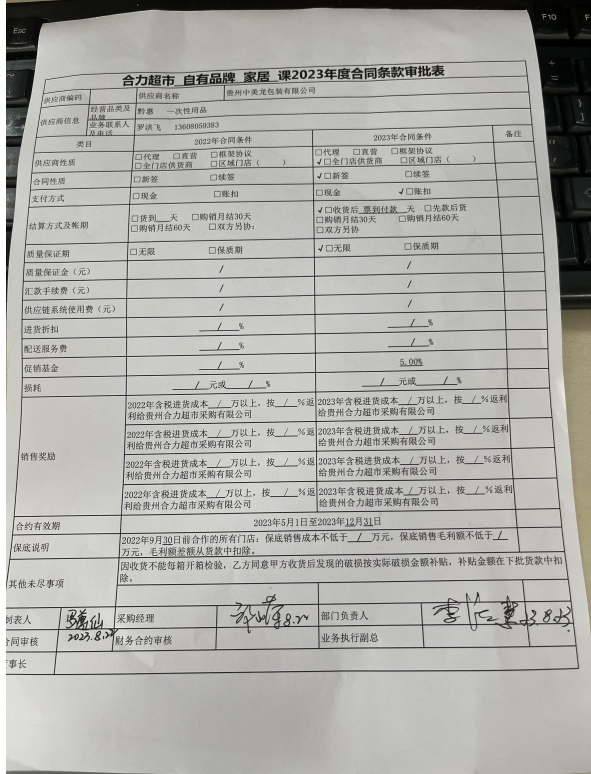 Esc
F10
合力超市 自有品牌 家居 课2023年度合同条款审批表
供应商编码 供应商名称 贵州中美龙包装有限公司
供应商信息 经营品类及品牌 黔惠 一次性用品
业务联系人及电话 罗洪飞 13608059383
类目 2022年合同条件 2023年合同条件 备注
供应商性质 □代理 □直营 □框架协议 □代理 □直营 □框架协议
□全门店供货商 □区域门店（ ） √□全门店供货商 □区域门店（ ）
合同性质 □新签 □续签 √□新签 □续签
支付方式 □现金 □账扣 □现金 √□账扣
结算方式及帐期 □货到___天 □购销月结30天 √□收货后_票到付款_天 □先款后货
□购销月结60天 □双方另协: □购销月结30天 □购销月结60天
□双方另协
质量保证期 □无限 □保质期 √□无限 □保质期
质量保证金（元） / /
汇款手续费（元） / /
供应链系统使用费（元） / /
进货折扣 __/__% __/__%
配送服务费 __/__% __/__%
促销基金 __/__% 5.00%
损耗 __/__元或__/__% __/__元或__/__%
销售奖励
2022年含税进货成本_/_万以上，按_/_%返 2023年含税进货成本_/_万以上，按_/_%返利
利给贵州合力超市采购有限公司 给贵州合力超市采购有限公司
2022年含税进货成本_/_万以上，按_/_%返 2023年含税进货成本_/_万以上，按_/_%返利
利给贵州合力超市采购有限公司 给贵州合力超市采购有限公司
2022年含税进货成本_/_万以上，按_/_%返 2023年含税进货成本_/_万以上，按_/_%返利
利给贵州合力超市采购有限公司 给贵州合力超市采购有限公司
2022年含税进货成本_/_万以上，按_/_%返 2023年含税进货成本_/_万以上，按_/_%返利
利给贵州合力超市采购有限公司 给贵州合力超市采购有限公司
合约有效期 2023年5月1日至2023年12月31日
保底说明 2022年9月30日前合作的所有门店: 保底销售成本不低于__/__万元，保底销售毛利额不低于_/_
万元，毛利额差额从货款中扣除。
其他未尽事项 因收货不能每箱开箱检验，乙方同意甲方收货后发现的破损按实际破损金额补贴，补贴金额在下批货款中扣
除。
制表人 采购经理 8.22 部门负责人 23.8.23
合同审核 2023.8.22 财务合约审核 业务执行副总
事长